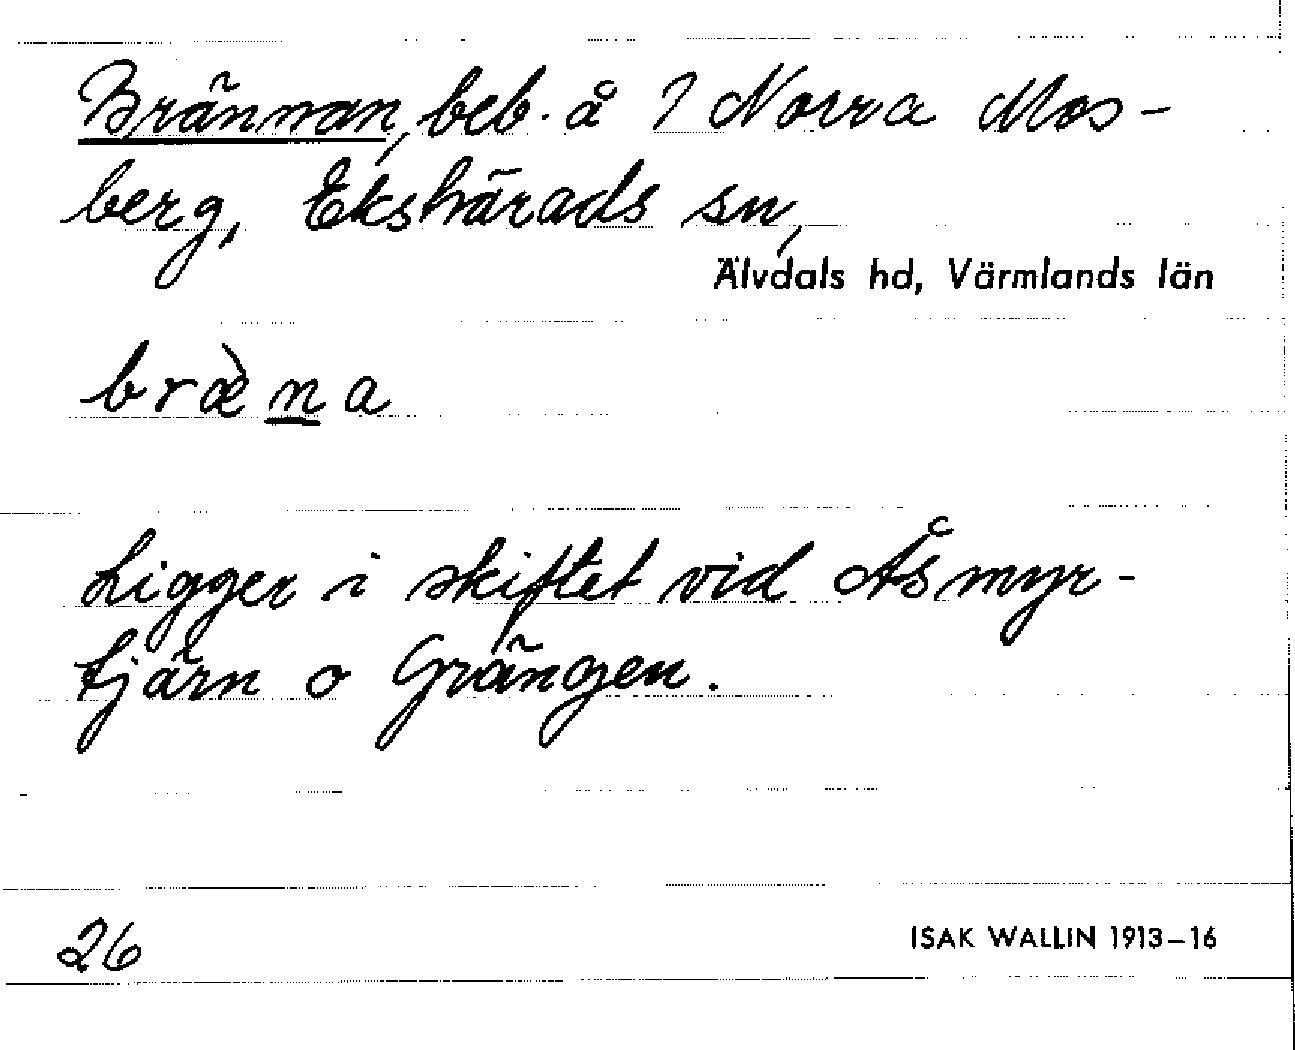 Brännan, beb. å 7 Norra Mos-
berg, Ekshärads sn,
Älvdals hd, Värmlands län
bræ̀n̲a
Ligger i skiftet vid Åsmyr-
tjärn o Grängen.
26
ISAK WALLIN 1913–16